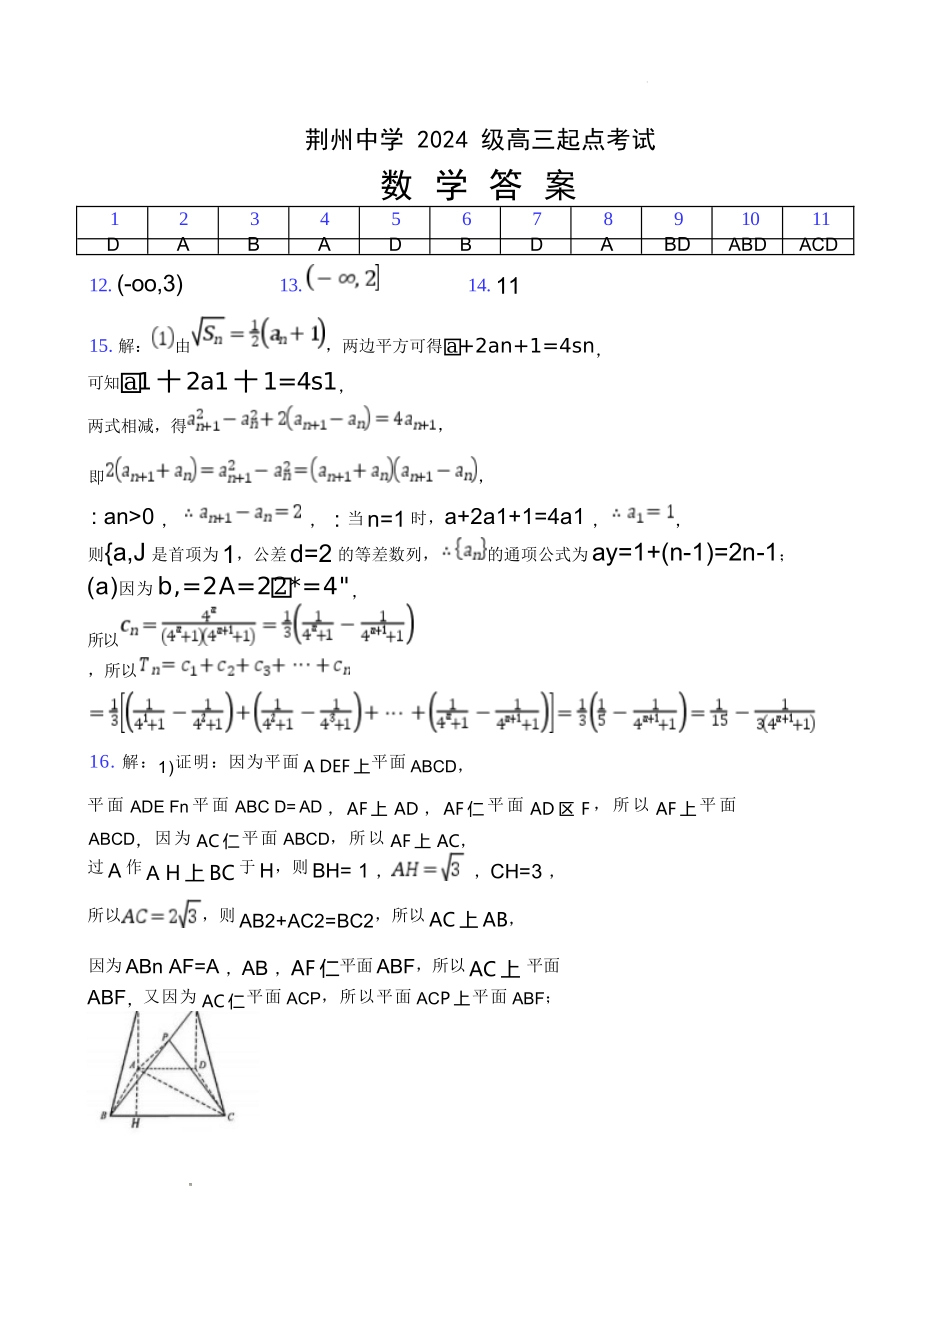 荆州中学 2024 级高三起点考试
数 学 答 案
1 2 3 4 5 6 7 8 9 10 11
D A B A D B D A BD ABD ACD
12. (-oo,3) 13. (－∞, 2] 14. 11
15. 解：(1)由√Sₙ = 1/2(aₙ+1)，两边平方可得a+2an+1=4sn，
可知a1＋2a1＋1=4s1，
两式相减，得a²ₙ₊₁－a²ₙ+2(aₙ₊₁－aₙ)=4aₙ₊₁，
即2(aₙ₊₁+aₙ)=a²ₙ₊₁－a²ₙ=(aₙ₊₁+aₙ)(aₙ₊₁－aₙ)，
: an>0 ，∴aₙ₊₁－aₙ=2 ，: 当 n=1 时，a+2a1+1=4a1 ，∴a₁=1，
则{a,J 是首项为 1，公差 d=2 的等差数列，∴{aₙ}的通项公式为 ay=1+(n-1)=2n-1；
(a)因为 b,=2A=22*=4"，
所以cₙ = 4ⁿ/((4ⁿ+1)(4ⁿ⁺¹+1)) = 1/3(1/(4ⁿ+1) － 1/(4ⁿ⁺¹+1))
，所以Tₙ= c₁+c₂+c₃+⋯+cₙ
= 1/3[(1/(4¹+1) － 1/(4²+1))+(1/(4²+1) － 1/(4³+1))+⋯+(1/(4ⁿ+1) － 1/(4ⁿ⁺¹+1))]= 1/3(1/5 － 1/(4ⁿ⁺¹+1))= 1/15 － 1/(3(4ⁿ⁺¹+1))
16. 解：1)证明：因为平面 A DEF 上平面 ABCD，
平面 ADE Fn 平面 ABC D= AD ，AF 上 AD ，AF 仁平面 AD 区 F，所以 AF 上平面
ABCD，因为 AC 仁平面 ABCD，所以 AF 上 AC，
过 A 作 A H 上 BC 于 H，则 BH= 1 ，AH=√3 ，CH=3 ，
所以AC=2√3，则 AB2+AC2=BC2，所以 AC 上 AB，
因为 ABn AF=A ，AB ，AF 仁平面 ABF，所以 AC 上 平面
ABF，又因为 AC 仁平面 ACP，所以平面 ACP 上平面 ABF；
P
A D
B H C